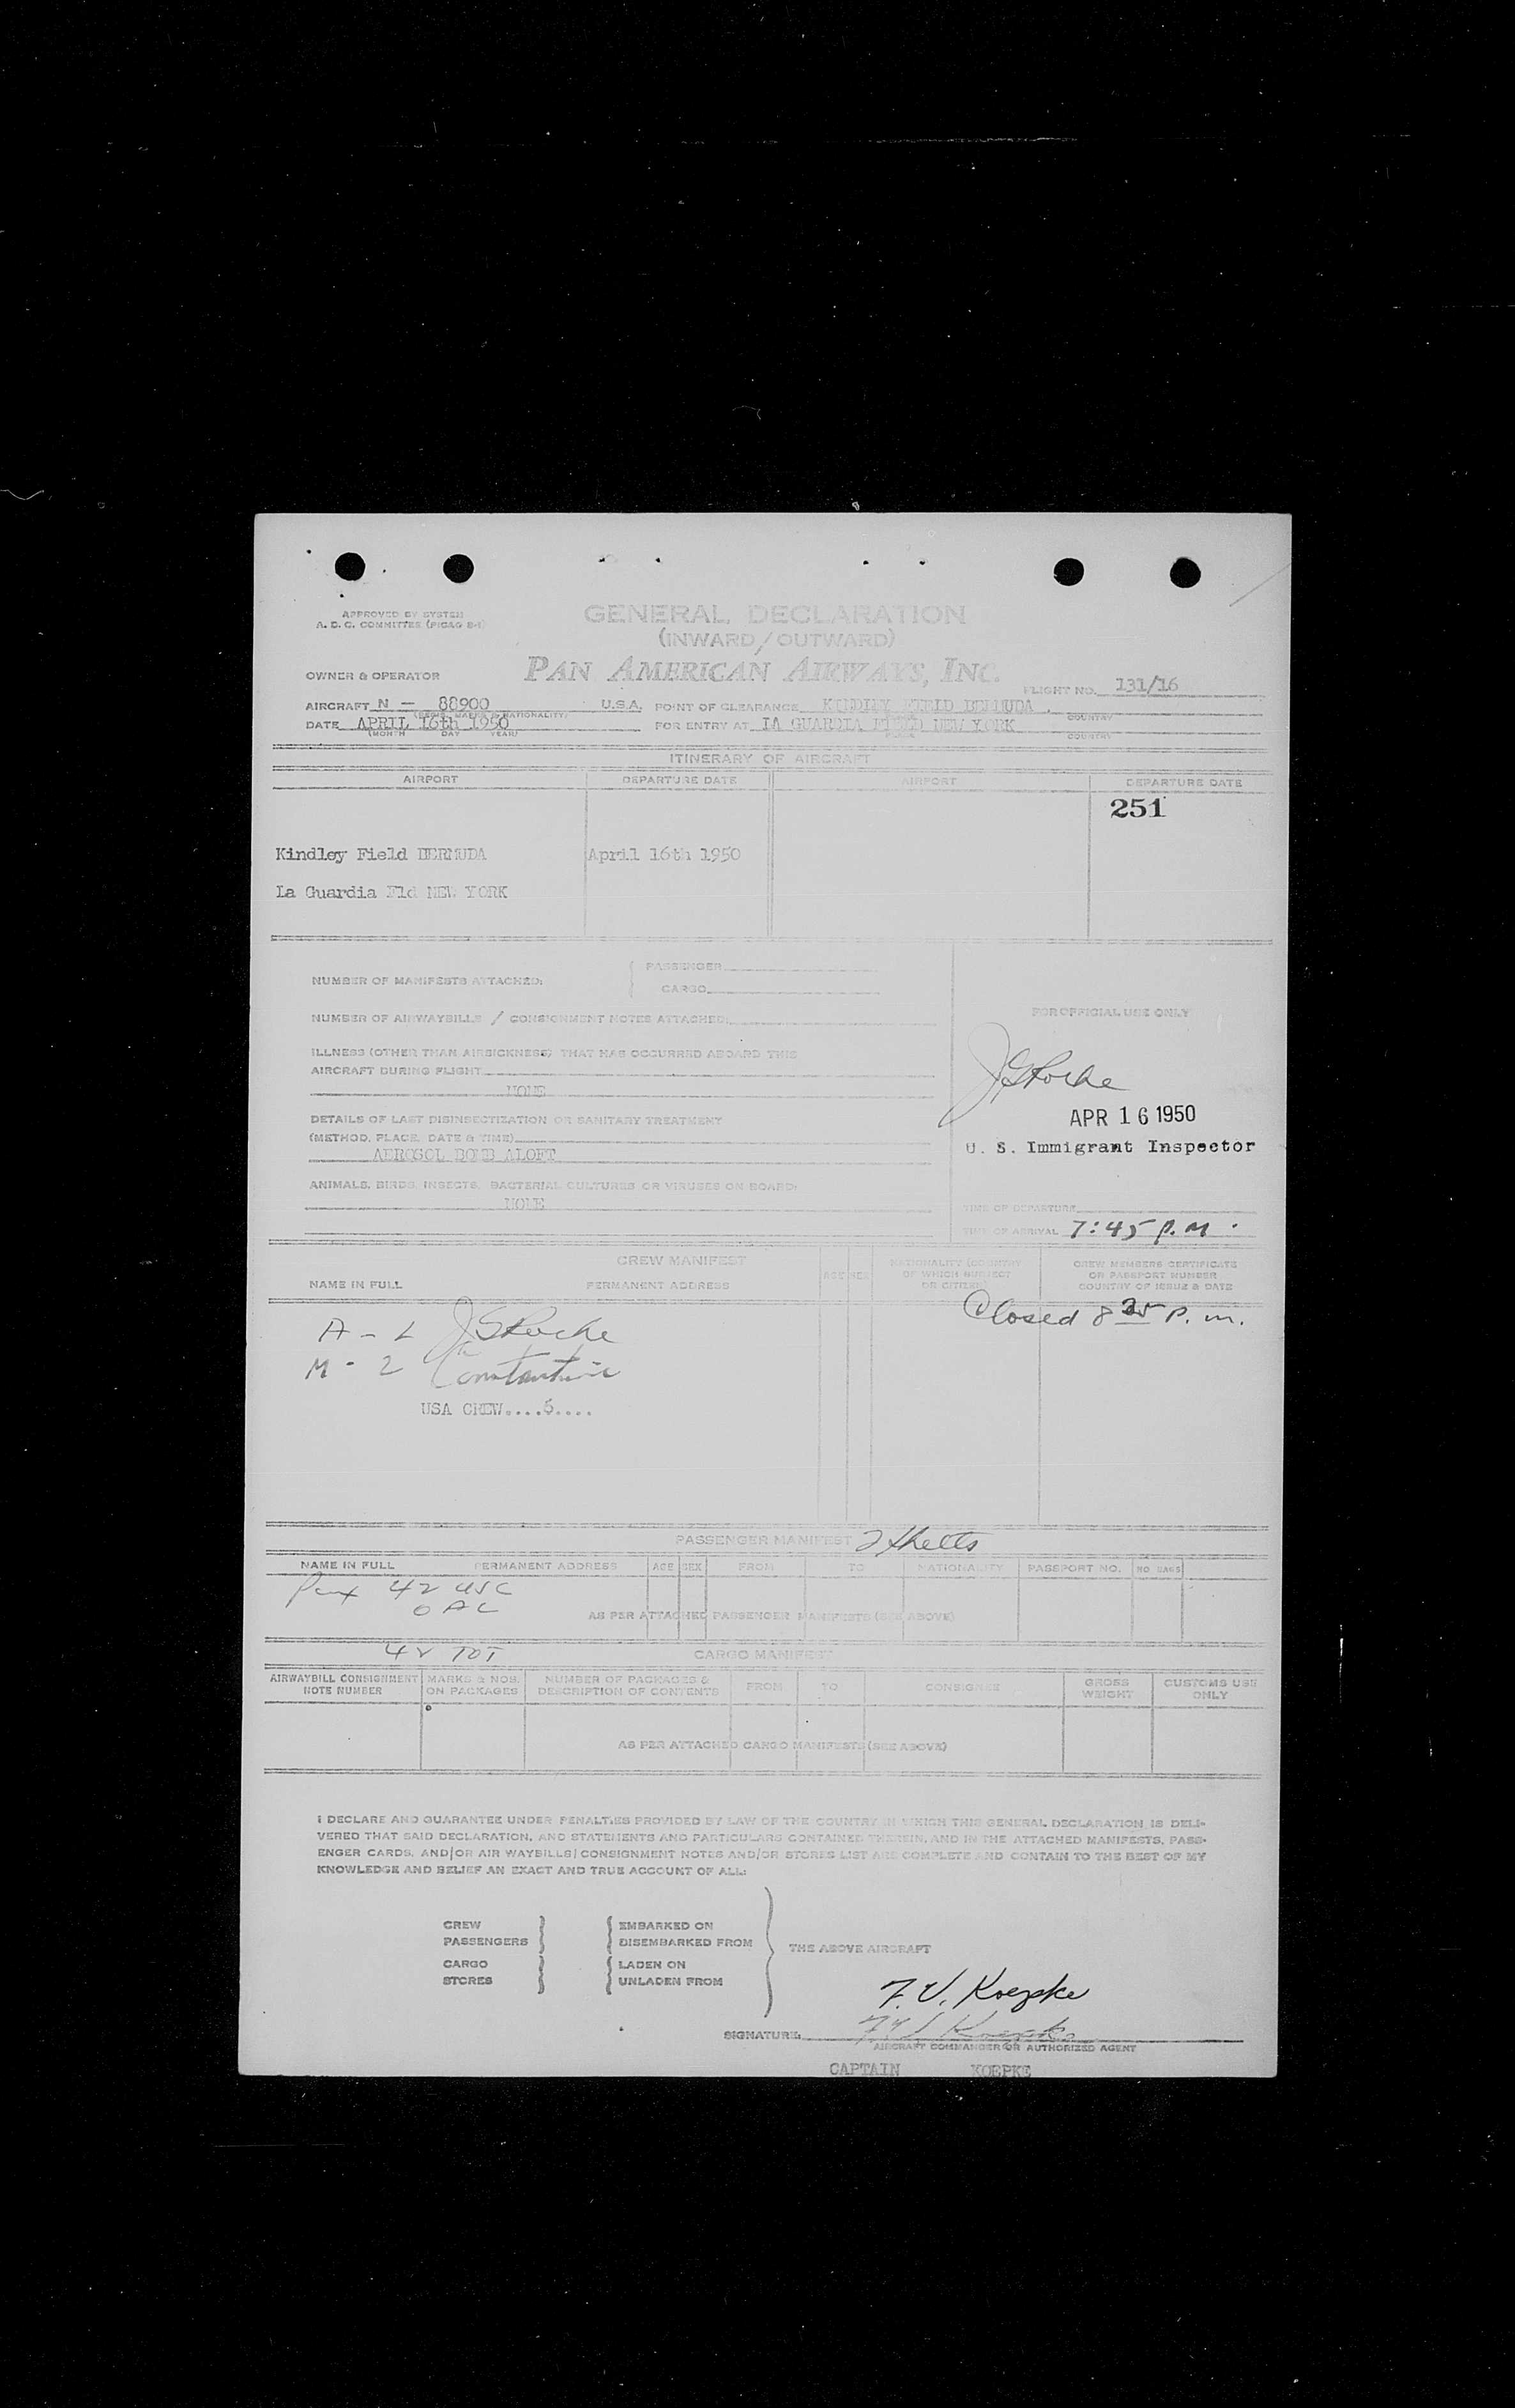 APPROVED BY SYSTEM
A. D. C. COMMITTEE (PICAO 8-1)
GENERAL DECLARATION
(INWARD/OUTWARD)
OWNER & OPERATOR PAN AMERICAN AIRWAYS, INC. FLIGHT NO. 131/16
AIRCRAFT N - 88900 U.S.A. POINT OF CLEARANCE KINDLEY FIELD BERMUDA
(REGIS. MARKS & NATIONALITY) PLACE COUNTRY
DATE APRIL 16th 1950 FOR ENTRY AT LA GUARDIA FIELD NEW YORK
(MONTH DAY YEAR) PLACE COUNTRY
ITINERARY OF AIRCRAFT
AIRPORT DEPARTURE DATE AIRPORT DEPARTURE DATE
251
Kindley Field BERMUDA April 16th 1950
La Guardia Fld NEW YORK
NUMBER OF MANIFESTS ATTACHED: PASSENGER
CARGO
NUMBER OF AIRWAYBILLS / CONSIGNMENT NOTES ATTACHED:
ILLNESS (OTHER THAN AIRSICKNESS) THAT HAS OCCURRED ABOARD THIS
AIRCRAFT DURING FLIGHT
NONE
DETAILS OF LAST DISINSECTIZATION OR SANITARY TREATMENT
(METHOD, PLACE, DATE & TIME)
AEROSOL BOMB ALOFT
ANIMALS, BIRDS, INSECTS, BACTERIAL CULTURES OR VIRUSES ON BOARD:
NONE
FOR OFFICIAL USE ONLY
JGRoche
APR 16 1950
U. S. Immigrant Inspector
TIME OF DEPARTURE
TIME OF ARRIVAL 7:45 P.M.
CREW MANIFEST
NAME IN FULL PERMANENT ADDRESS AGE SEX NATIONALITY (COUNTRY
OF WHICH SUBJECT
OR CITIZEN)
CREW MEMBERS CERTIFICATE
OR PASSPORT NUMBER
COUNTRY OF ISSUE & DATE
Closed 8 25 P. m.
A - L JGRoche
M - 2 Constantine
USA CREW....5....
PASSENGER MANIFEST 2 Sheets
NAME IN FULL PERMANENT ADDRESS AGE SEX FROM TO NATIONALITY PASSPORT NO. NO BAGS
Pax 42 USC
0 AL
AS PER ATTACHED PASSENGER MANIFESTS (SEE ABOVE)
42 TOT
CARGO MANIFEST
AIRWAYBILL CONSIGNMENT NOTE NUMBER MARKS & NOS. ON PACKAGES NUMBER OF PACKAGES & DESCRIPTION OF CONTENTS FROM TO CONSIGNEE GROSS WEIGHT CUSTOMS USE ONLY
AS PER ATTACHED CARGO MANIFESTS (SEE ABOVE)
I DECLARE AND GUARANTEE UNDER PENALTIES PROVIDED BY LAW OF THE COUNTRY IN WHICH THIS GENERAL DECLARATION IS DELI-
VERED THAT SAID DECLARATION, AND STATEMENTS AND PARTICULARS CONTAINED THEREIN, AND IN THE ATTACHED MANIFESTS, PASS-
ENGER CARDS, AND/OR AIR WAYBILLS/ CONSIGNMENT NOTES AND/OR STORES LIST ARE COMPLETE AND CONTAIN TO THE BEST OF MY
KNOWLEDGE AND BELIEF AN EXACT AND TRUE ACCOUNT OF ALL:
CREW EMBARKED ON
PASSENGERS DISEMBARKED FROM
THE ABOVE AIRCRAFT
CARGO LADEN ON
STORES UNLADEN FROM
F. V. Koepke
SIGNATURE F V Koepke
AIRCRAFT COMMANDER OR AUTHORIZED AGENT
CAPTAIN KOEPKE